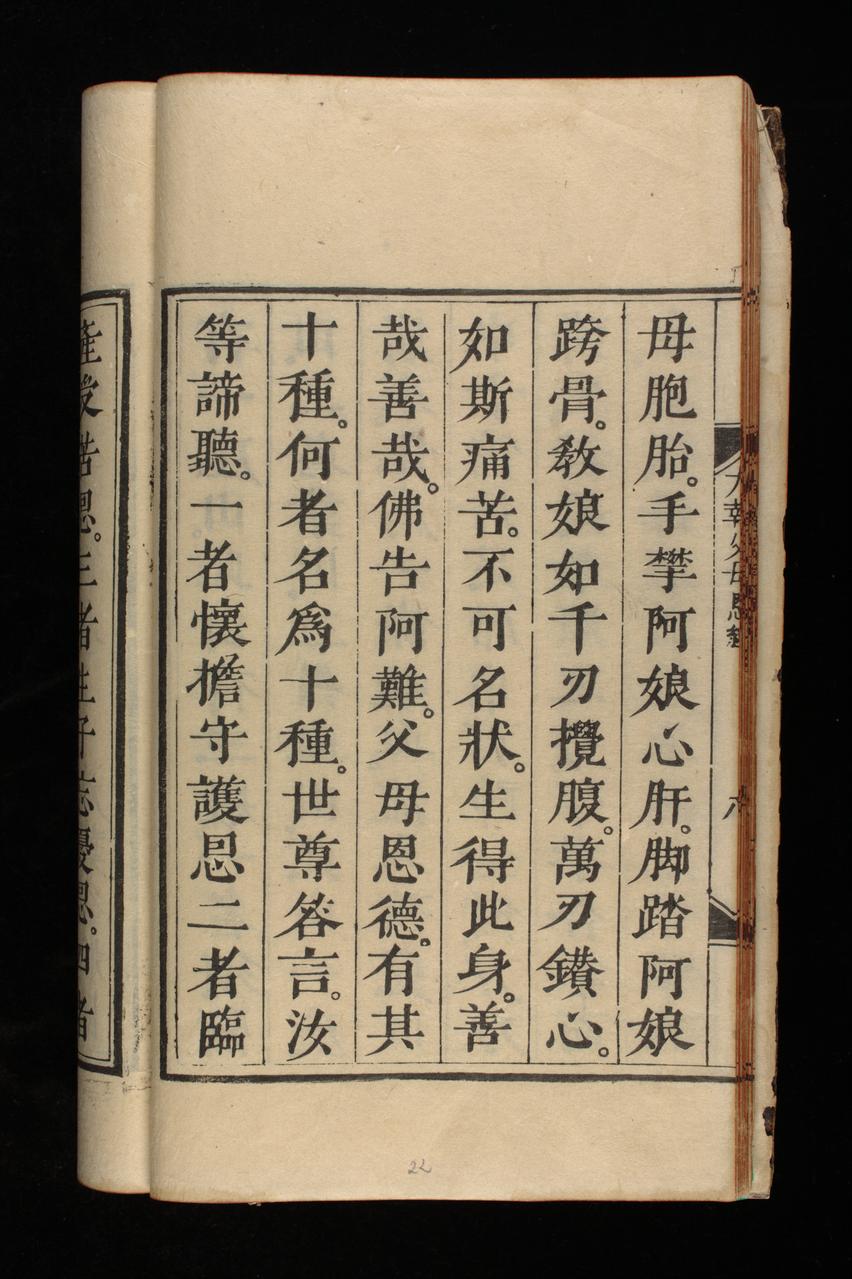 母胞胎。手攀阿娘心肝。脚踏阿娘
跨骨。教娘如千刃攪腹。萬刃鑚心。
如斯痛苦。不可名狀。生得此身。善
哉善哉。佛告阿難。父母恩德。有其
十種。何者名爲十種。世尊答言。汝
等諦聽。一者懷擔守護恩二者臨
產受苦恩。三者生子忘憂恩。四者
父母恩
22